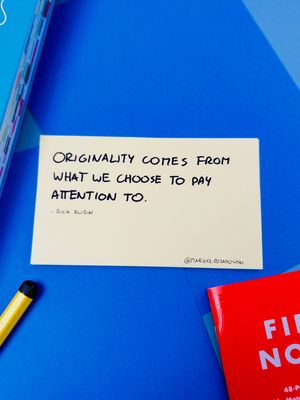 ORIGINALITY COMES FROM
WHAT WE CHOOSE TO PAY
ATTENTION TO.
- RICK RUBIN
FI
NO
48-P